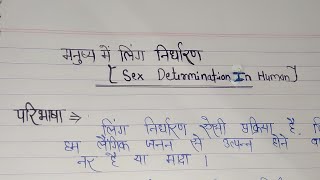 मनुष्य में लिंग निर्धारण
[ Sex Determination In Human ]
परिभाषा ⇒
लिंग निर्धारण ऐसी प्रक्रिया है.
हम लैंगिक जनन से उत्पन्न होने
नर है या मादा ।